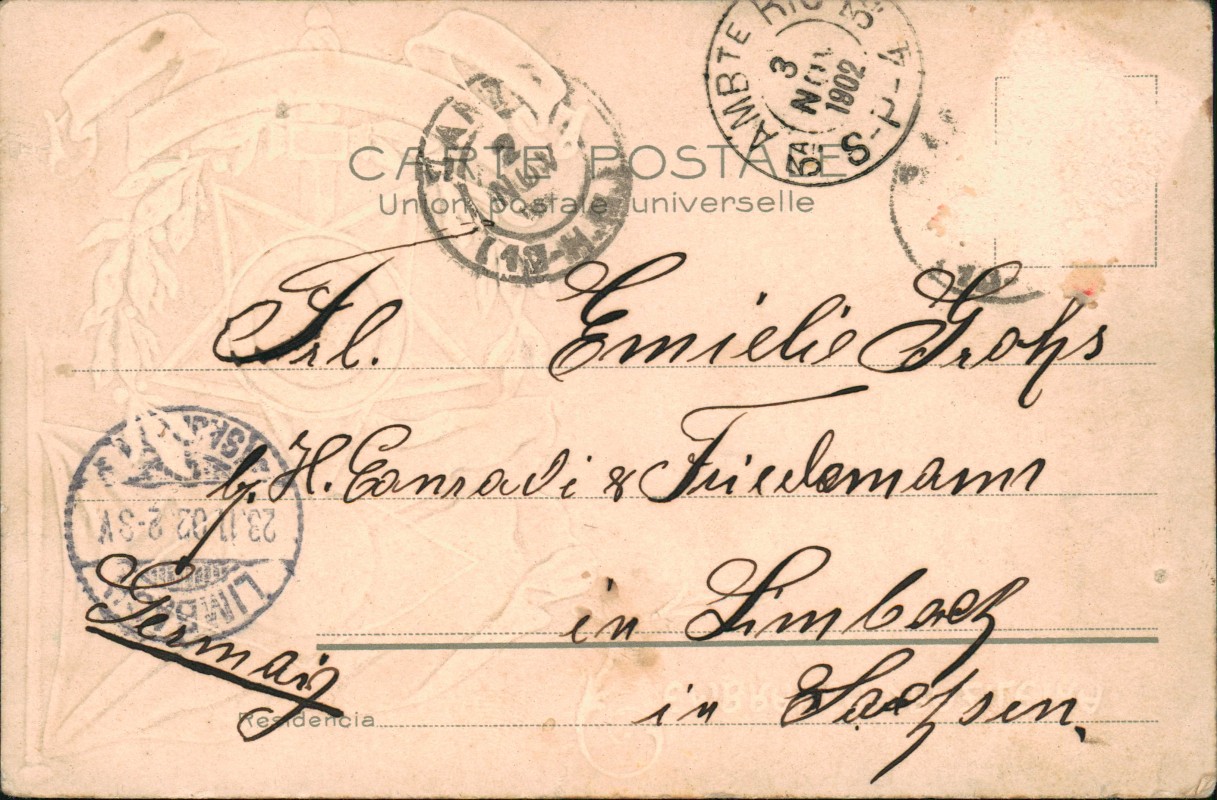 AMBTE RIO 3ª
3ª
3
NOV
1902
S-P-4
CARTE POSTALE
Union postale universelle
Frl. Emielie Grohs
b. H. Conradi & Friedemann
in Limbach
Germany
in Sachsen.
Residencia
LIMBACH
23.11.02.2-3V.